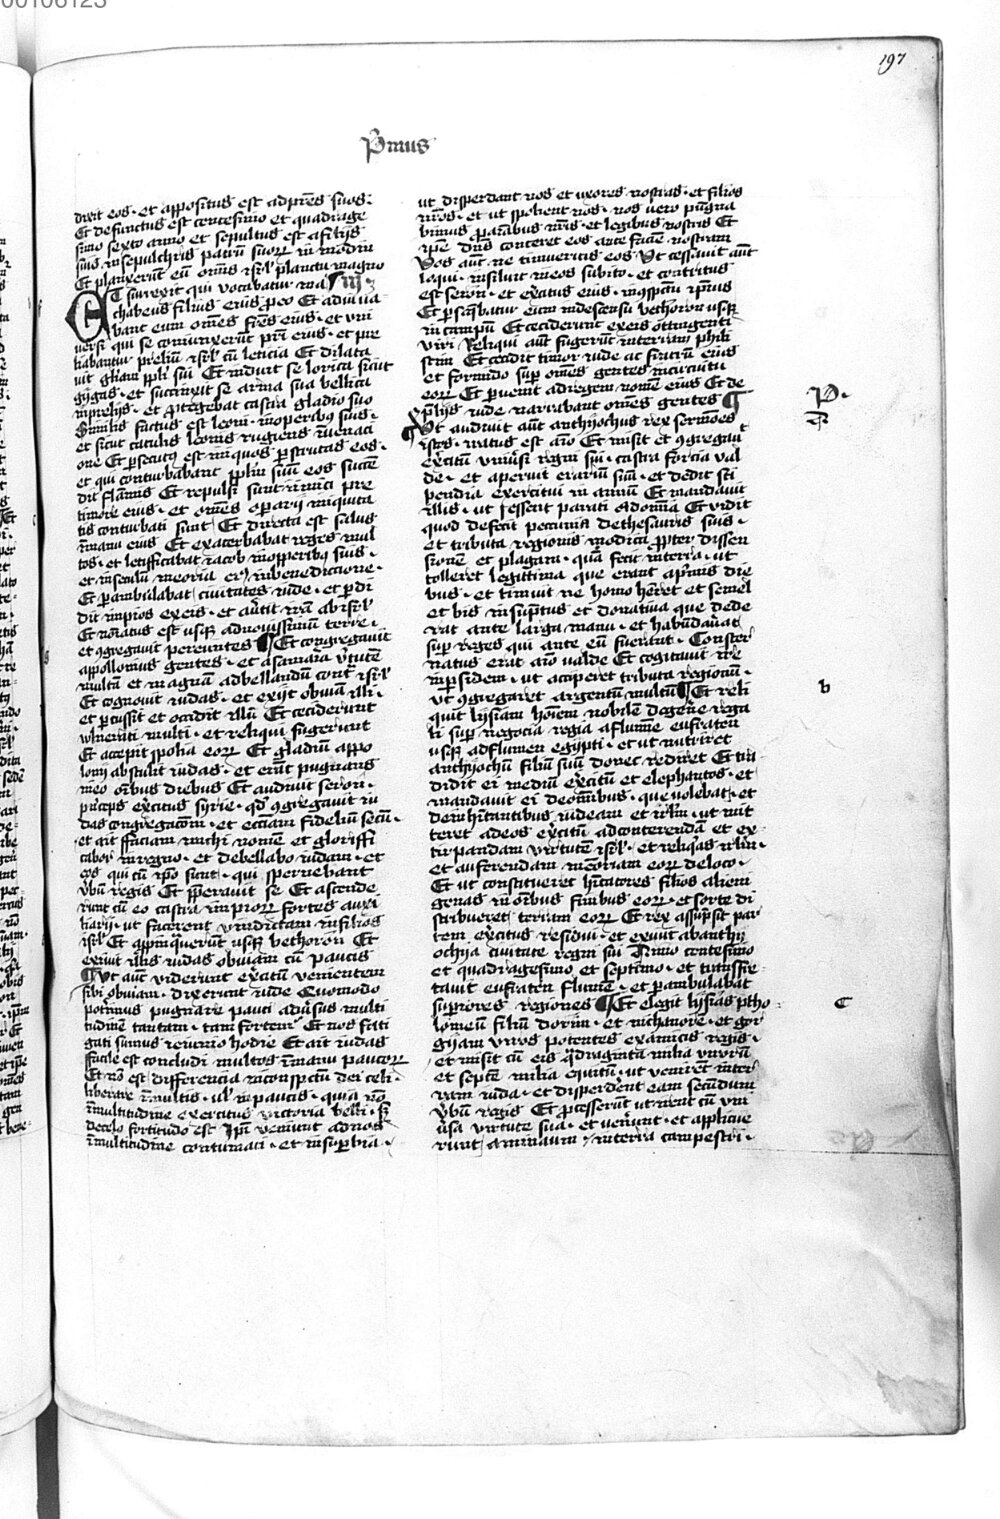 197
Primus
dixit eos · et appositus est ad pres̄ suos ·
Et defunctus est centesimo et quadrage
simo sexto anno et sepultus est a filijs
suis in sepulchris patrū suoꝝ in modin
Et planxerūt eū om̄s isrl̄ planctu magno
Et surrexit qui vocabatur ma III
chabeus filius eius p̄ eo Et adiuua
bant eum om̄es fr̄es eius · et vni
uersi qui se coniunxerūt pr̄i eius · et pre
liabantur preliū isrl̄ cū leticia Et dilata
uit gl̄iam ppl̄i sui Et induit se lorica sicut
gygas · et succinxit se arma sua bellica
in prelijs · et ꝓtegebat castra gladio suo
Similis factus est leoni · in operibus suis ·
et sicut catulus leonis rugiens ī venaci
one Et ꝑsecutus est iniquos ꝑscrutās eos ·
et qui conturbabant ppl̄m suū eos succē
dit flāmis Et repulsi sunt inimici pre
timore eius · et om̄es operarij iniquita
tis conturbati sunt Et directa est salus
ī manu eius Et exacerbabat reges mul
tos · et letifficabat iacob in operibus suis ·
et in seculū memoria eius in benedictione ·
Et ꝑambulabat ciuitates iude · et ꝑdi
dit impios ex eis · et auertit iram ab isrl̄
Et noīatus est vsqꝫ ad nouissimū terre ·
et ꝯgregauit pereuntes ¶ Et congregauit
appollonius gentes · et a samaria v̄tutē
multā et magnā ad bellandū contra isrl̄
Et cognouit iudas · et exijt obuiā illi ·
et ꝑcussit et occidit illū Et ceciderunt
wlnerati multi · et reliqui fugerunt
Et accepit spolia eoꝝ Et gladiū appo
lonij abstulit iudas · et erat pugnans
in eo om̄ibus diebus Et audiuit seron ·
pⁱnceps ex̄citus syrie · qd̄ ꝯgregauit iu
das congregacōm · et eccl̄iam fideliū secū ·
et ait faciam michi nomē et gloriffi
cabor in regno · et debellabo iudam · et
eos qui cū ip̄o sunt · qui spernebant
v̄bū regis Et p̄parauit se Et ascende
runt cū eo castra impioꝝ fortes auxi
liarij · ut facerent vindictam in filios
isrl̄ Et appinquerūt vsqꝫ bethoron Et
exiuit illis iudas obuiam cū paucis
¶ Vt aut̄ viderunt ex̄citū venientem
sibi obuiam · dixerunt iude Quomodo
poterimus pugnare pauci aduersus multi
tudinē tantam · tam fortem Et nos fati
gati sumus ieiunio hodie Et ait iudas
facile est concludi multos ī manu paucoꝝ
Et nō est differencia in conspectu dei celi ·
liberare ī multis · ul̄ in paucis · quia nō
ī multitudine exercitus victoria belli · sꝫ
de celo fortitudo est Ip̄i veniunt ad nos
ī multitudine contumaci · et in suꝑbia ·
ut disperdant nos et vxores nostras · et filios
nr̄os · et ut spolient nos · nos vero pugna
bimus ꝓ aīabus nr̄is · et legibus nostris Et
ip̄e dn̄s conteret eos ante faciē nostram
Vos aut̄ ne timueritis eos Vt cessauit aut̄
loqui · insiluit in eos subito · et contritus
est seron · et exercitus eius · in cōspectu ip̄ius
Et ꝑseqbatur eum in descensu bethoron vsqꝫ
in campū Et ceciderunt ex eis octingenti
viri Reliqui aut̄ fugerūt in terram phili
stim Et cecidit timor iude ac fratrū eius
et formido suꝑ om̄es gentes in circuitu
eoꝝ Et ꝑuenit ad regem nomē eius Et de
p̄lijs iude narrabant om̄es gentes ¶
Vt audiuit aut̄ anthyochus rex sermōes
istos · iratus est aīo Et misit et ꝯgregauit
ex̄citū vniuersi regni sui · castra forcia val
de · et aperuit erariū suū · et dedit sti
pendia exercitui in annū Et mandauit
illis · ut essent parati ad omnia Et vidit
quod defecit pecunia de thesauris suis ·
et tributa regionis modica ꝓpter dissen
sionē et plagam · quā fecit in terra · ut
tolleret legittima que erant a pⁱmis die
bus · et timuit ne homo hēret et semel
et bis in sumptus et donatiua que dede
rat ante larga manu · et habūdauat
suꝑ reges qui ante eū fuerant · Conster
natus erat aīo valde Et cogitauit ire
in ꝑsidem · ut acciperet tributa regionū ·
Vt ꝯgregaret argentū multū ¶ Et reli
quit lysiam hoīem nobilē de genere rega
li suꝑ negocia regia a flumine eufraten
vsqꝫ ad flumen egypti · et ut nutriret
anthyochū filiū suū donec rediret Et tra
didit ei mediū ex̄citū et elephantos · et
mandauit ei de om̄ibus · que volebat · et
de inhitantibus iudeam et irl̄m · ut mit
teret ad eos ex̄citū ad conterendā et ex
tirpandam virtutē isrl̄ · et reliqⁱas irl̄m ·
et auferendam memoriam eoꝝ de loco ·
Et ut constitueret hitatores filios alieni
genas in om̄ibus finibus eoꝝ · et sorte di
stribueret terram eoꝝ Et rex assūpsit par
tem ex̄citus residui · et exiuit ab anthy
ochya ciuitate regni sui Anno centesimo
et quadragesimo et septimo · et transfre
tauit eufraten flumē · et ꝑambulabat
suꝑiores regiones ¶ Et elegit lysias ptho
lomeū filiū dorini · et nichanorē · et gor
gyam viros potentes ex amicis regis ·
et misit cū eis qⁱdraginta milia virorū
et septē milia equitū · ut venirēt in ter
ram iuda · et disperderent eam secūdum
v̄bū regis Et ꝓcesserūt ut irent cū vni
uersa virtute sua · et venerunt · et applicue
runt ammaum in terra campestri ·
b
c